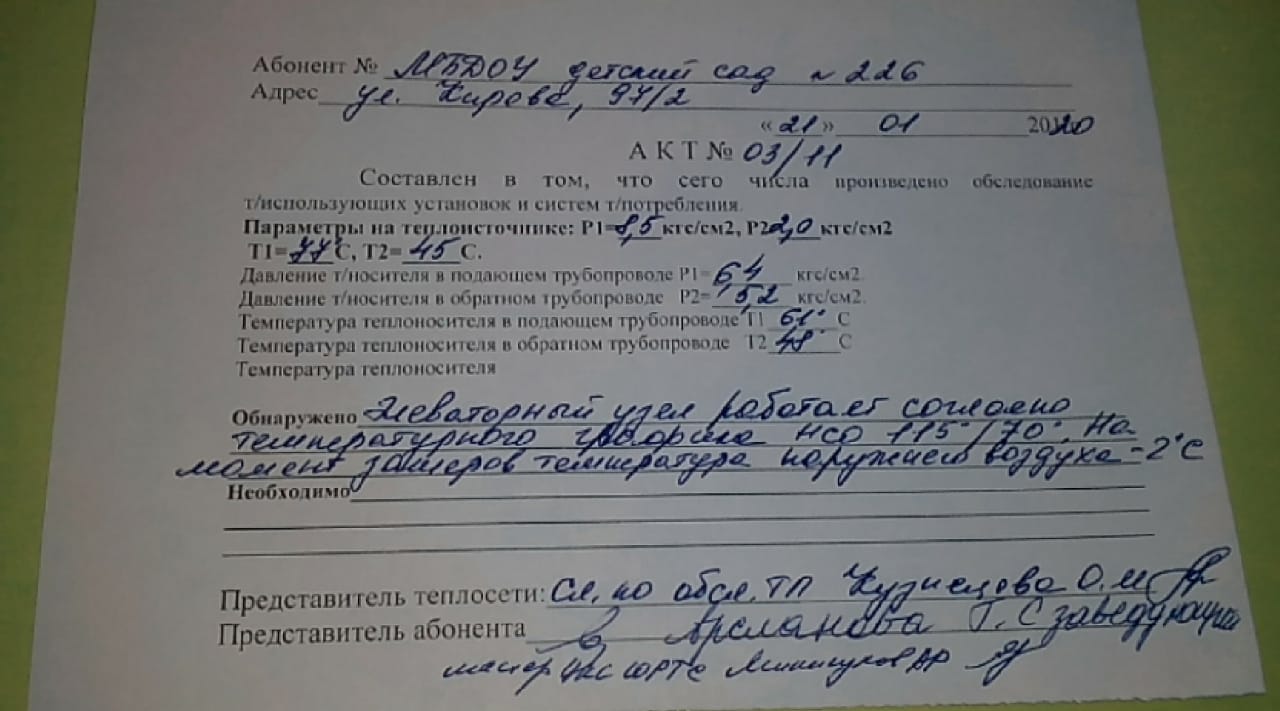 Абонент № МБДОУ детский сад № 226
Адрес ул. Кирова, 97/2
«21» 01 2020
АКТ № 03/11
Составлен в том, что сего числа произведено обследование
т/использующих установок и систем т/потребления.
Параметры на теплоисточнике: Р1=8,5 кгс/см2, Р2 2,0 кгс/см2
Т1=77°С, Т2=45 С.
Давление т/носителя в подающем трубопроводе Р1=6,4 кгс/см2.
Давление т/носителя в обратном трубопроводе Р2=5,2 кгс/см2.
Температура теплоносителя в подающем трубопроводе Т1 61° С
Температура теплоносителя в обратном трубопроводе Т2 48° С
Температура теплоносителя
Обнаружено Элеваторный узел работает согласно
температурного графика НСО 115°/70°. На
момент замеров температура наружнего воздуха -2°С
Необходимо
Представитель теплосети: Сл. по обсл. ТП Кузнецова О.И
Представитель абонента Арсланова Г.С заведующий
мастер